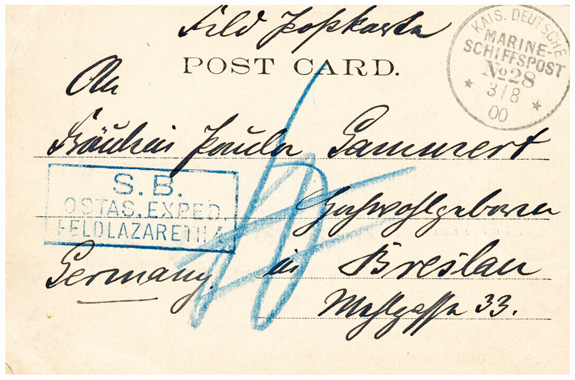 Feld Postkarte
POST CARD.
KAIS. DEUTSCHE
MARINE-
SCHIFFSPOST
No 28
* 3/8 *
00
An
Fräulein Paula Gammert
S.B.
OSTAS. EXPED.
FELDLAZARETH 4
Hochwohlgeboren
Germany. in Breslau
33.